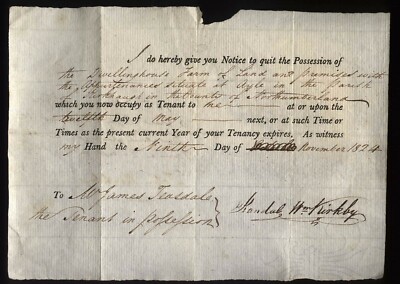 I do hereby give you Notice to quit the Possession of
the Dwellinghouse Farm of Land and premises with
the Appurtenances situate at Ayle in the Parish
of Kirkhaugh in the County of Northumberland
which you now occupy as Tenant to me at or upon the
twelfth Day of May next, or at such Time or
Times as the present current Year of your Tenancy expires. As witness
my Hand the Ninth Day of November 1824
To Mr James Teasdale
the Tenant in possession
Wm Kirkby